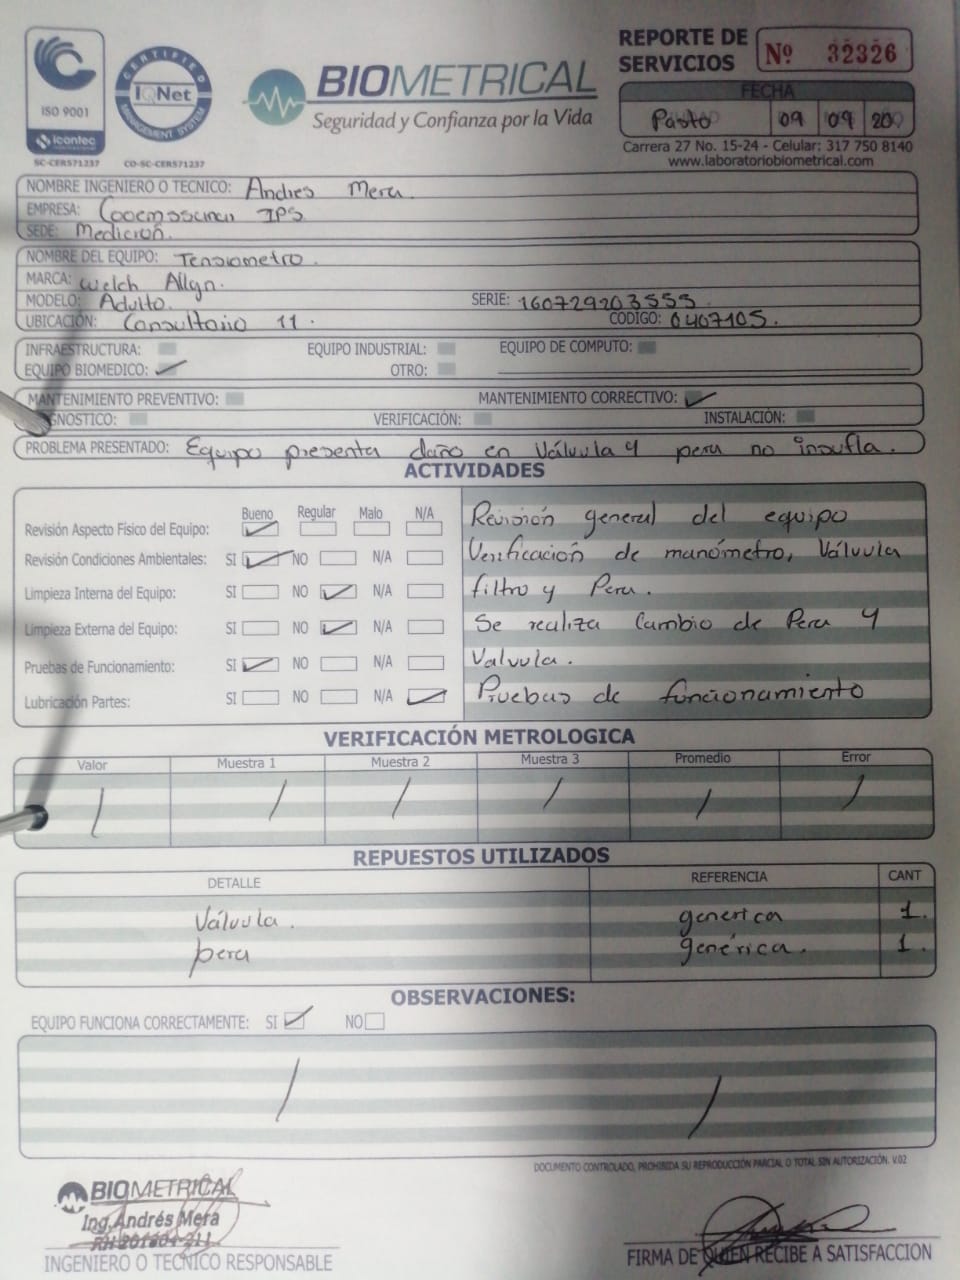 ISO 9001
icontec
SC-CER571237
CERTIFIED
IQNet
MANAGEMENT SYSTEM
CO-SC-CER571237
BIOMETRICAL
Seguridad y Confianza por la Vida
REPORTE DE
SERVICIOS
Nº 32326
FECHA
Pasto 09 09 20
Carrera 27 No. 15-24 - Celular: 317 750 8140
www.laboratoriobiometrical.com
NOMBRE INGENIERO O TECNICO: Andres Mera.
EMPRESA: IPS
SEDE: Medicion.
NOMBRE DEL EQUIPO: Tensiometro.
MARCA: Welch Allyn.
MODELO: Adulto. SERIE: 160729203555
UBICACIÓN: Consultorio 11. CODIGO: 0407105.
INFRAESTRUCTURA: EQUIPO INDUSTRIAL: EQUIPO DE COMPUTO:
EQUIPO BIOMEDICO: OTRO:
MANTENIMIENTO PREVENTIVO: MANTENIMIENTO CORRECTIVO:
GNOSTICO: VERIFICACIÓN: INSTALACIÓN:
PROBLEMA PRESENTADO: Equipo presenta daño en Válvula y pera no insufla.
ACTIVIDADES
Bueno Regular Malo N/A
Revisión Aspecto Físico del Equipo:
Revisión Condiciones Ambientales: SI NO N/A
Limpieza Interna del Equipo: SI NO N/A
Limpieza Externa del Equipo: SI NO N/A
Pruebas de Funcionamiento: SI NO N/A
Lubricación Partes: SI NO N/A
Revisión general del equipo
Verificación de manómetro, Válvula
filtro y Pera.
Se realiza Cambio de Pera y
Valvula.
Pruebas de funcionamiento
VERIFICACIÓN METROLOGICA
Valor Muestra 1 Muestra 2 Muestra 3 Promedio Error
/ / / / / /
REPUESTOS UTILIZADOS
DETALLE REFERENCIA CANT
Válvula. generica 1.
pera genérica. 1.
OBSERVACIONES:
EQUIPO FUNCIONA CORRECTAMENTE: SI NO
/ /
DOCUMENTO CONTROLADO, PROHIBIDA SU REPRODUCCIÓN PARCIAL O TOTAL SIN AUTORIZACIÓN. V.02
BIOMETRICAL
Ing. Andrés Mera
INGENIERO O TECNICO RESPONSABLE
FIRMA DE QUIEN RECIBE A SATISFACCION